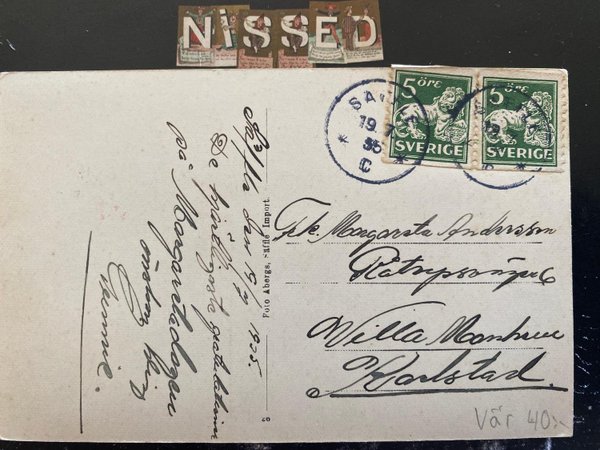 NISSED
5 ÖRE
SVERIGE
5 ÖRE
SVERIGE
SÄFFLE
19.7
35
C
Säffle den 19/7 1935.
De hjärtligaste gratulationer
på Margaretadagen
önskar Dig
Foto Abergs, Säffle Import.
Frk. Margareta Andersson
Villa
Karlstad.
Vår 40:-